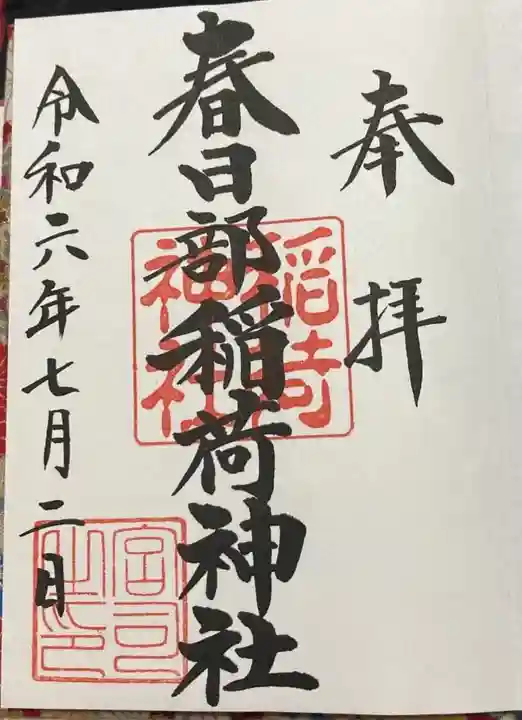 奉拝
春日部稲荷神社
令和六年七月二日
宮司之印